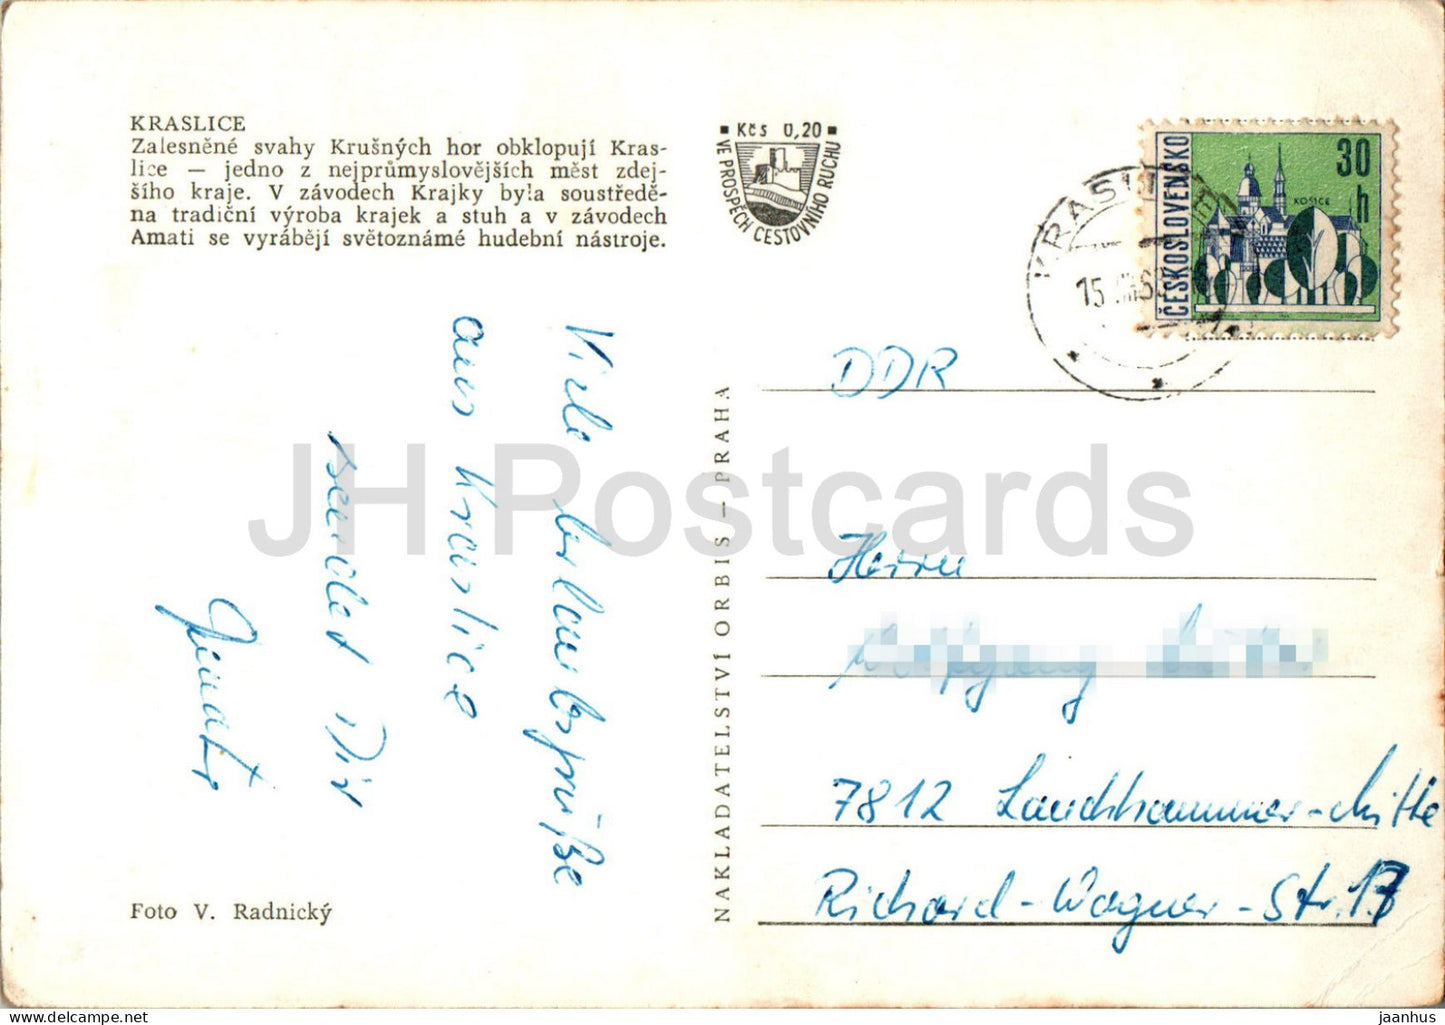 KRASLICE
Zalesněné svahy Krušných hor obklopují Kras-
lice — jedno z nejprůmyslovějších měst zdej-
šího kraje. V závodech Krajky byla soustředě-
na tradiční výroba krajek a stuh a v závodech
Amati se vyrábějí světoznámé hudební nástroje.
Kčs 0,20
VE PROSPĚCH CESTOVNÍHO RUCHU
ČESKOSLOVENSKO
30
h
KOŠICE
KRASLICE
15
Viele
aus Kraslice
sendet Dir
NAKLADATELSTVÍ ORBIS — PRAHA
DDR
Herrn
7812 Lauchhammer-Mitte
Richard-Wagner-Str.
Foto V. Radnický
JH Postcards
jaanhus @ delcampe.net